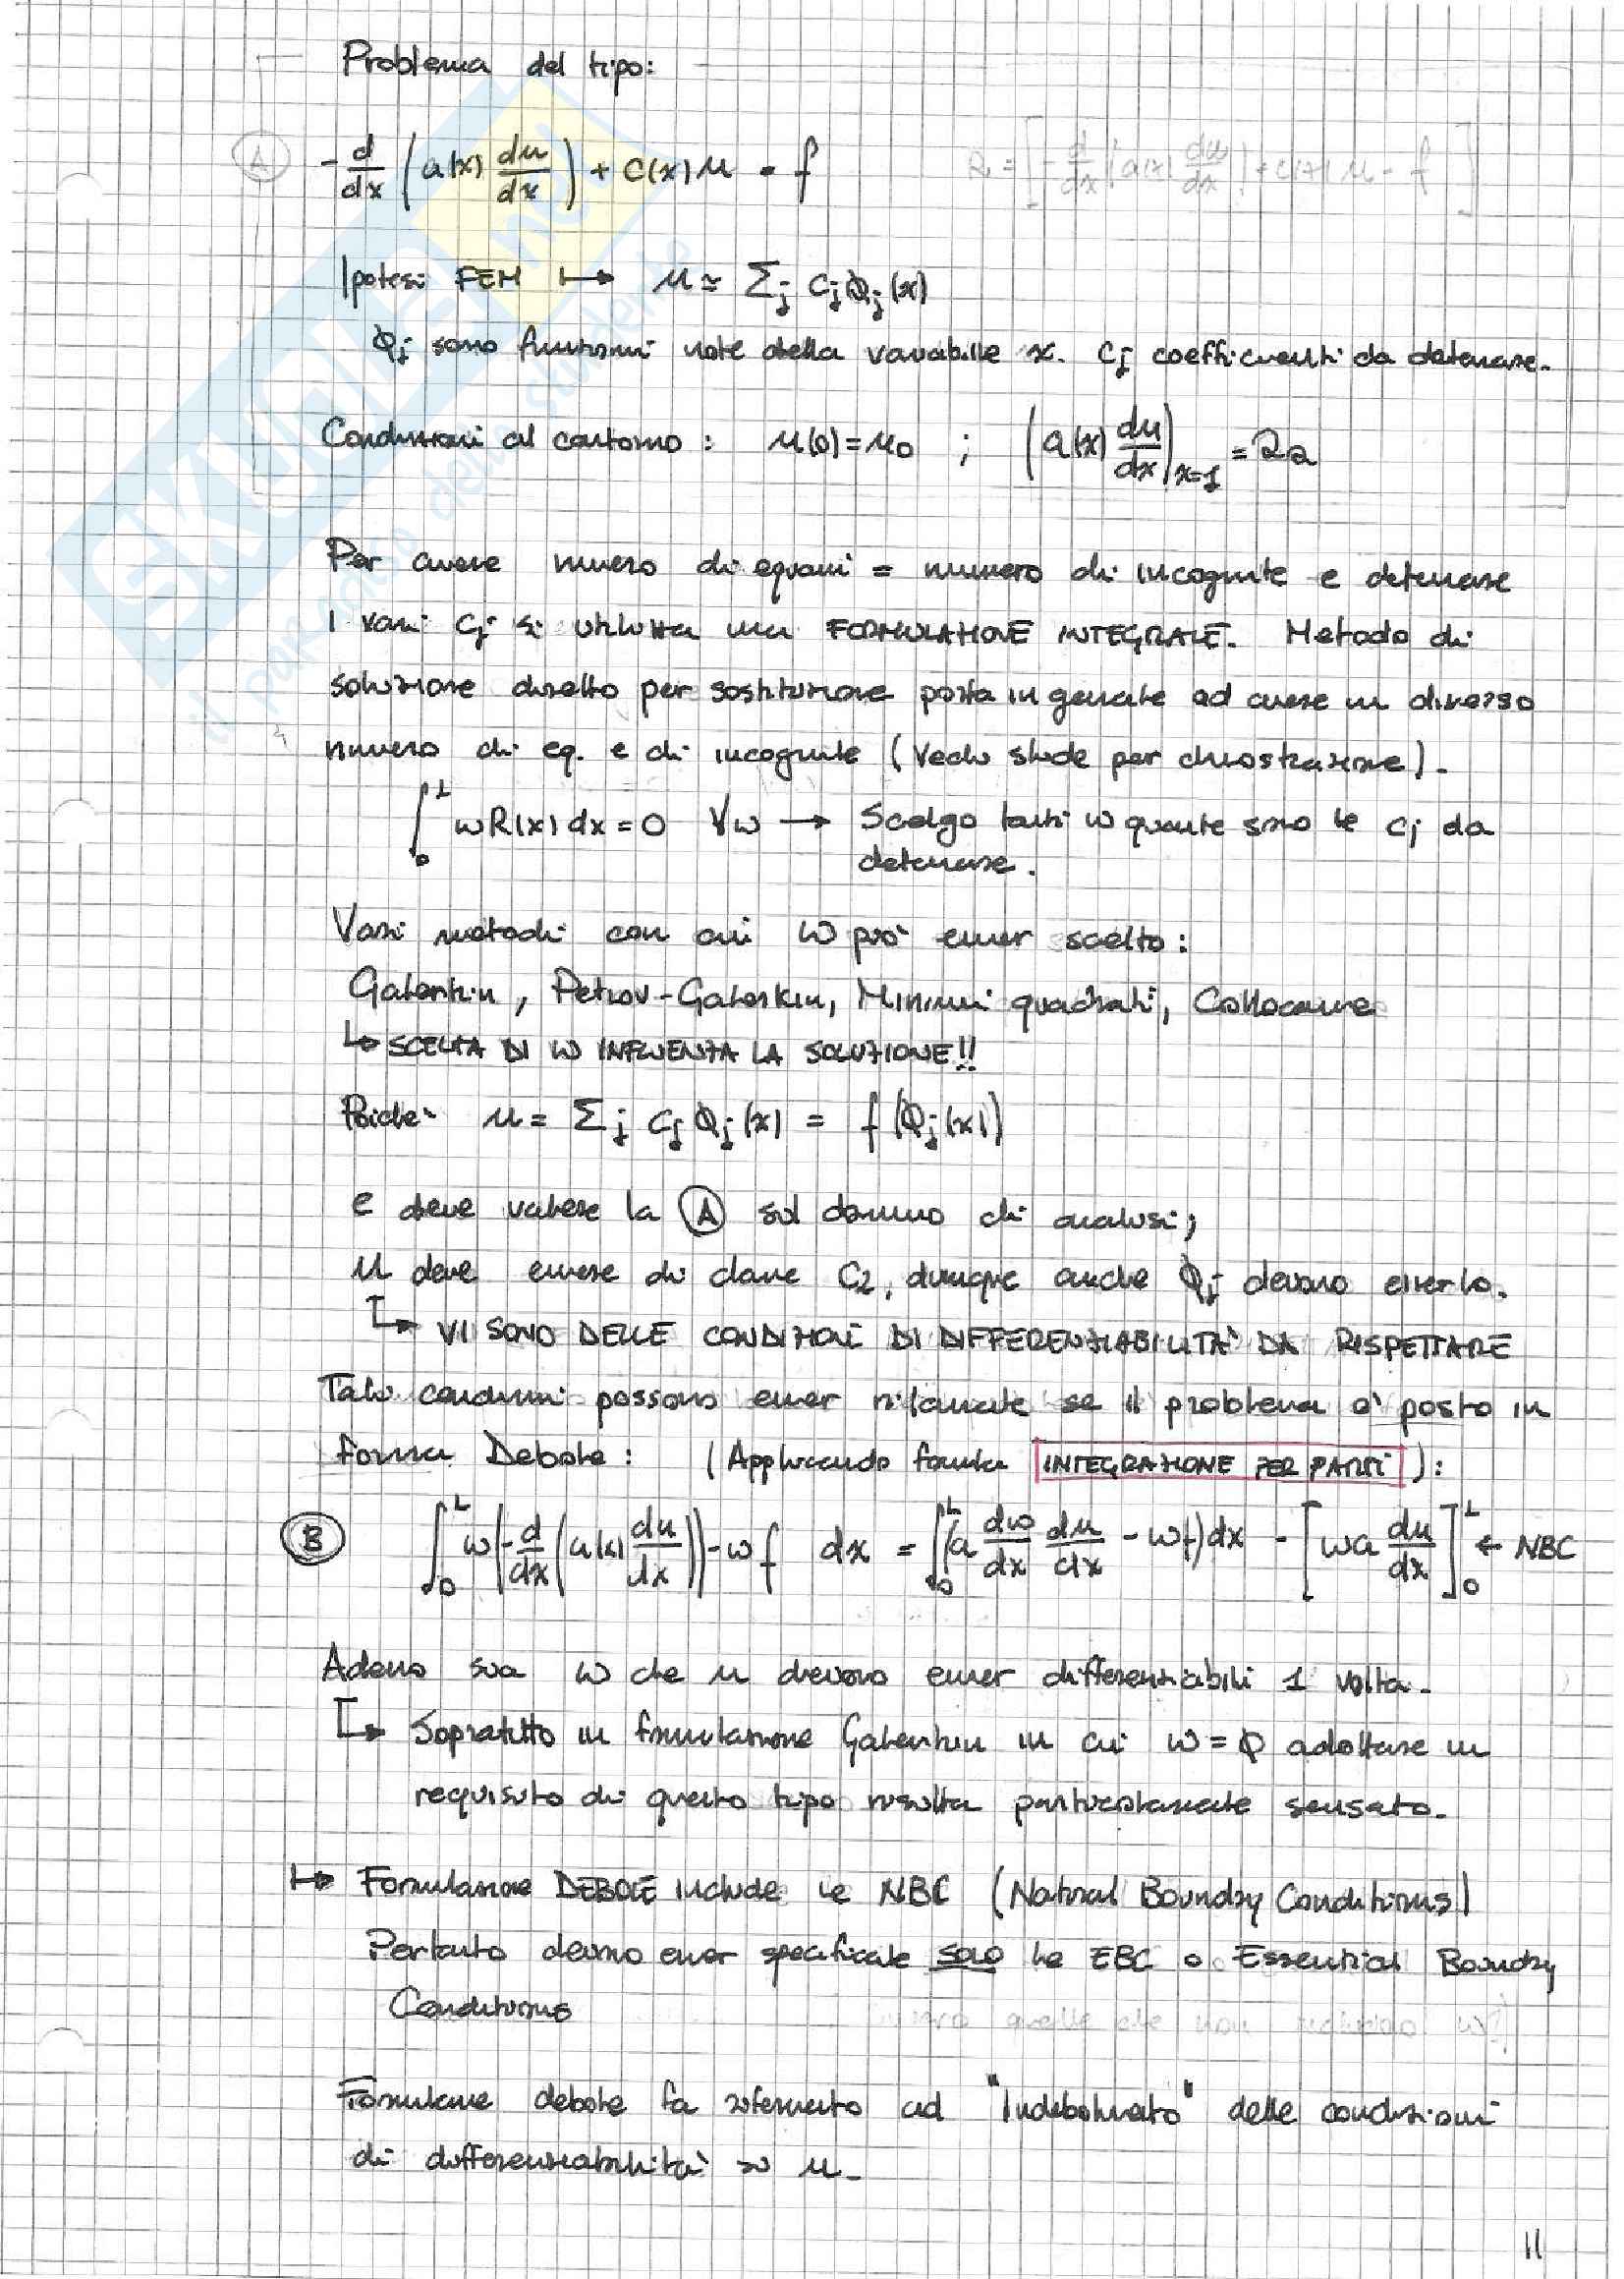 Problema del tipo:
(A) -d/dx (a(x) du/dx) + c(x)u = f
R = [-d/dx (a(x) du/dx) + c(x)u - f]
Ipotesi FEM ↦ u ≃ Σj cj ϕj(x)
ϕj sono funzioni note della variabile x. cj coefficienti da determinare.
Condizioni al contorno: u(0)=u0 ; (a(x) du/dx)|x=1 =
Per avere numero di equazioni = numero di incognite e determinare
i vari cj si utilizza una FORMULAZIONE INTEGRALE. Metodo di
soluzione diretto per sostituzione porta in generale ad avere un diverso
numero di eq. e di incognite (Vedi slide per dimostrazione).
∫0^L wR(x) dx = 0 ∀w → Scelgo tanti w quante sono le cj da
determinare.
Vari metodi con cui w può esser scelto:
Galerkin, Petrov-Galerkin, Minimi quadrati, Collocazione
↳ SCELTA DI W INFLUENZA LA SOLUZIONE!!
Poiché u = Σj cj ϕj(x) = f(ϕj(x))
e deve valere la (A) sul dominio di analisi;
u deve essere di classe C2, dunque anche ϕj devono esserlo.
↳ VI SONO DELLE CONDIZIONI DI DIFFERENZIABILITÀ DA RISPETTARE
Tali condizioni possono esser rilassate se il problema è posto in
forma Debole: (Applicando formula INTEGRAZIONE PER PARTI):
(B) ∫0^L w(-d/dx (a(x) du/dx)) - wf dx = ∫0^L (a dw/dx du/dx - wf)dx - [wa du/dx]0^L ← NBC
Adesso sia w che u devono esser differenziabili 1 volta.
↳ Sopratutto in formulazione Galerkin in cui w=ϕ adottare un
requisito di questo tipo risulta particolarmente sensato.
↦ Formulazione DEBOLE include le NBC (Natural Boundry Conditions)
Pertanto devono esser specificate SOLO le EBC o Essential Boundry
Conditions
quelle che non includono w)]
Formulazione debole fa riferimento ad "Indebolimento" delle condizioni
di differenziabilità su u.
11
SKUOLA.net
il paradiso dello studente